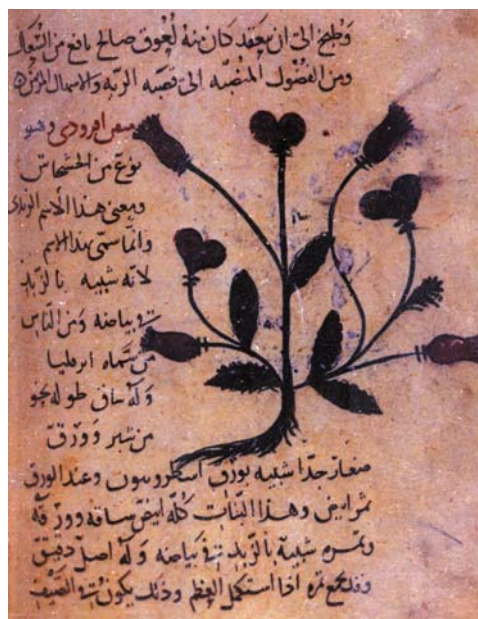 وطبخ الى ان ينعقد كان منه لعوق صالح نافع من السعال
ومن الفضول المنصبه الى قصبه الريه والاسهال المزمن
افرودى وهو
نوع من الخشخاش
ومعنى هذا الاسم الزبدى
وانما سمى بهذا الاسم
لانه شبيه بالزبد
في بياضه ومن الناس
من سماه
وله ساق طوله نحو
من شبر وورق
صغار جدا شبيه بورق وعند الورق
ثمر ابيض وهذا النبات كله ابيض ساقه وورقه
وثمره شبيه بالزبد في بياضه وله اصل دقيق
وقد يجمع ثمره اذا استكمل العظم وذلك يكون في الصيف